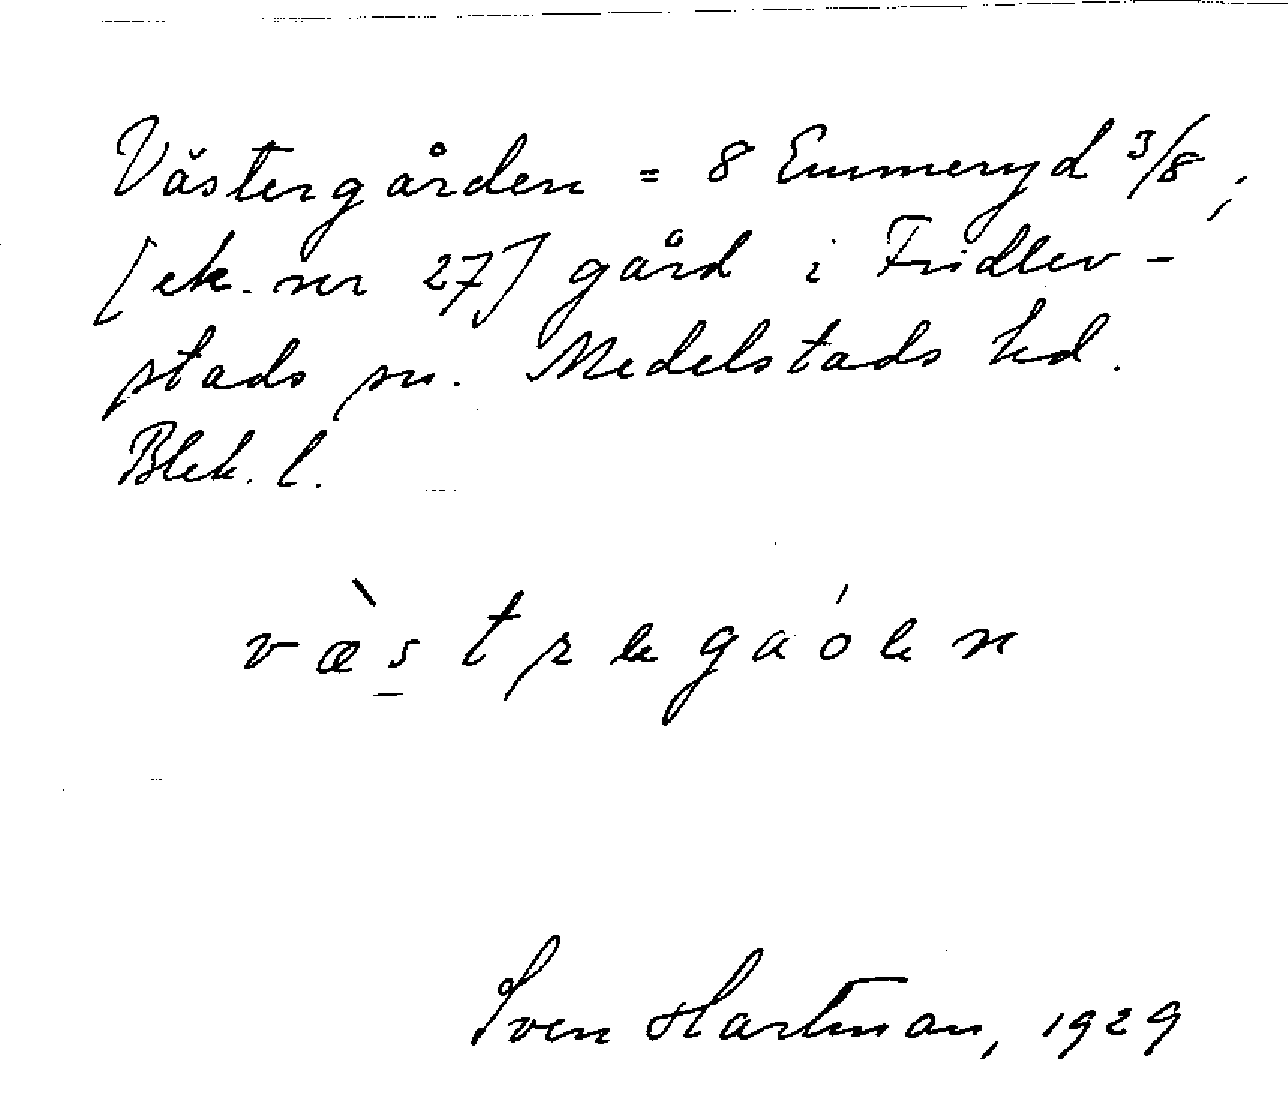 Västergården = 8 Emmeryd 3/8;
[ek. nr 27] gård i Fridlev-
stads sn. Medelstads hd.
Blek. l.
væ̀strega óen
Sven Hartman, 1929